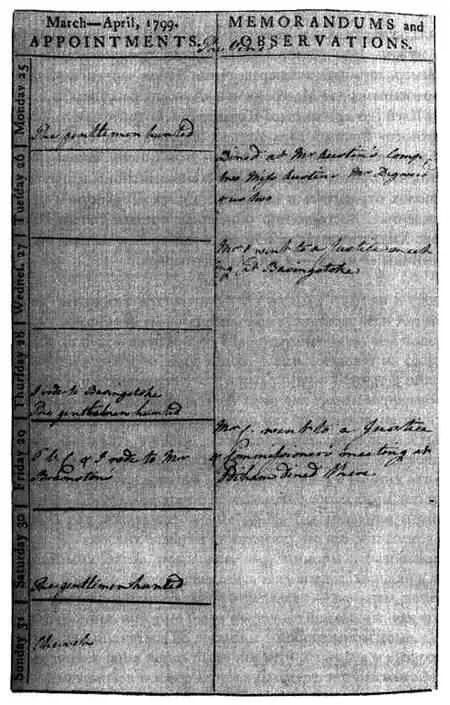 March—April, 1799.
APPOINTMENTS.
MEMORANDUMS and
OBSERVATIONS.
The Vine
Monday 25
The gentlemen hunted
Tuesday 26
Dined at Mr Austin's Comp:
Miss Austin Mr Digweed
& us two
Wednes. 27
Mr went to a Justice meet
ing at Basingstoke
Thursday 28
I rode to Basingstoke
The gentlemen hunted
Friday 29
& I rode to Mr
Bramston
Mr C. went to a Justice
& Commissioner's meeting at
Odiham dined there
Saturday 30
The gentlemen hunted
Sunday 31
Church